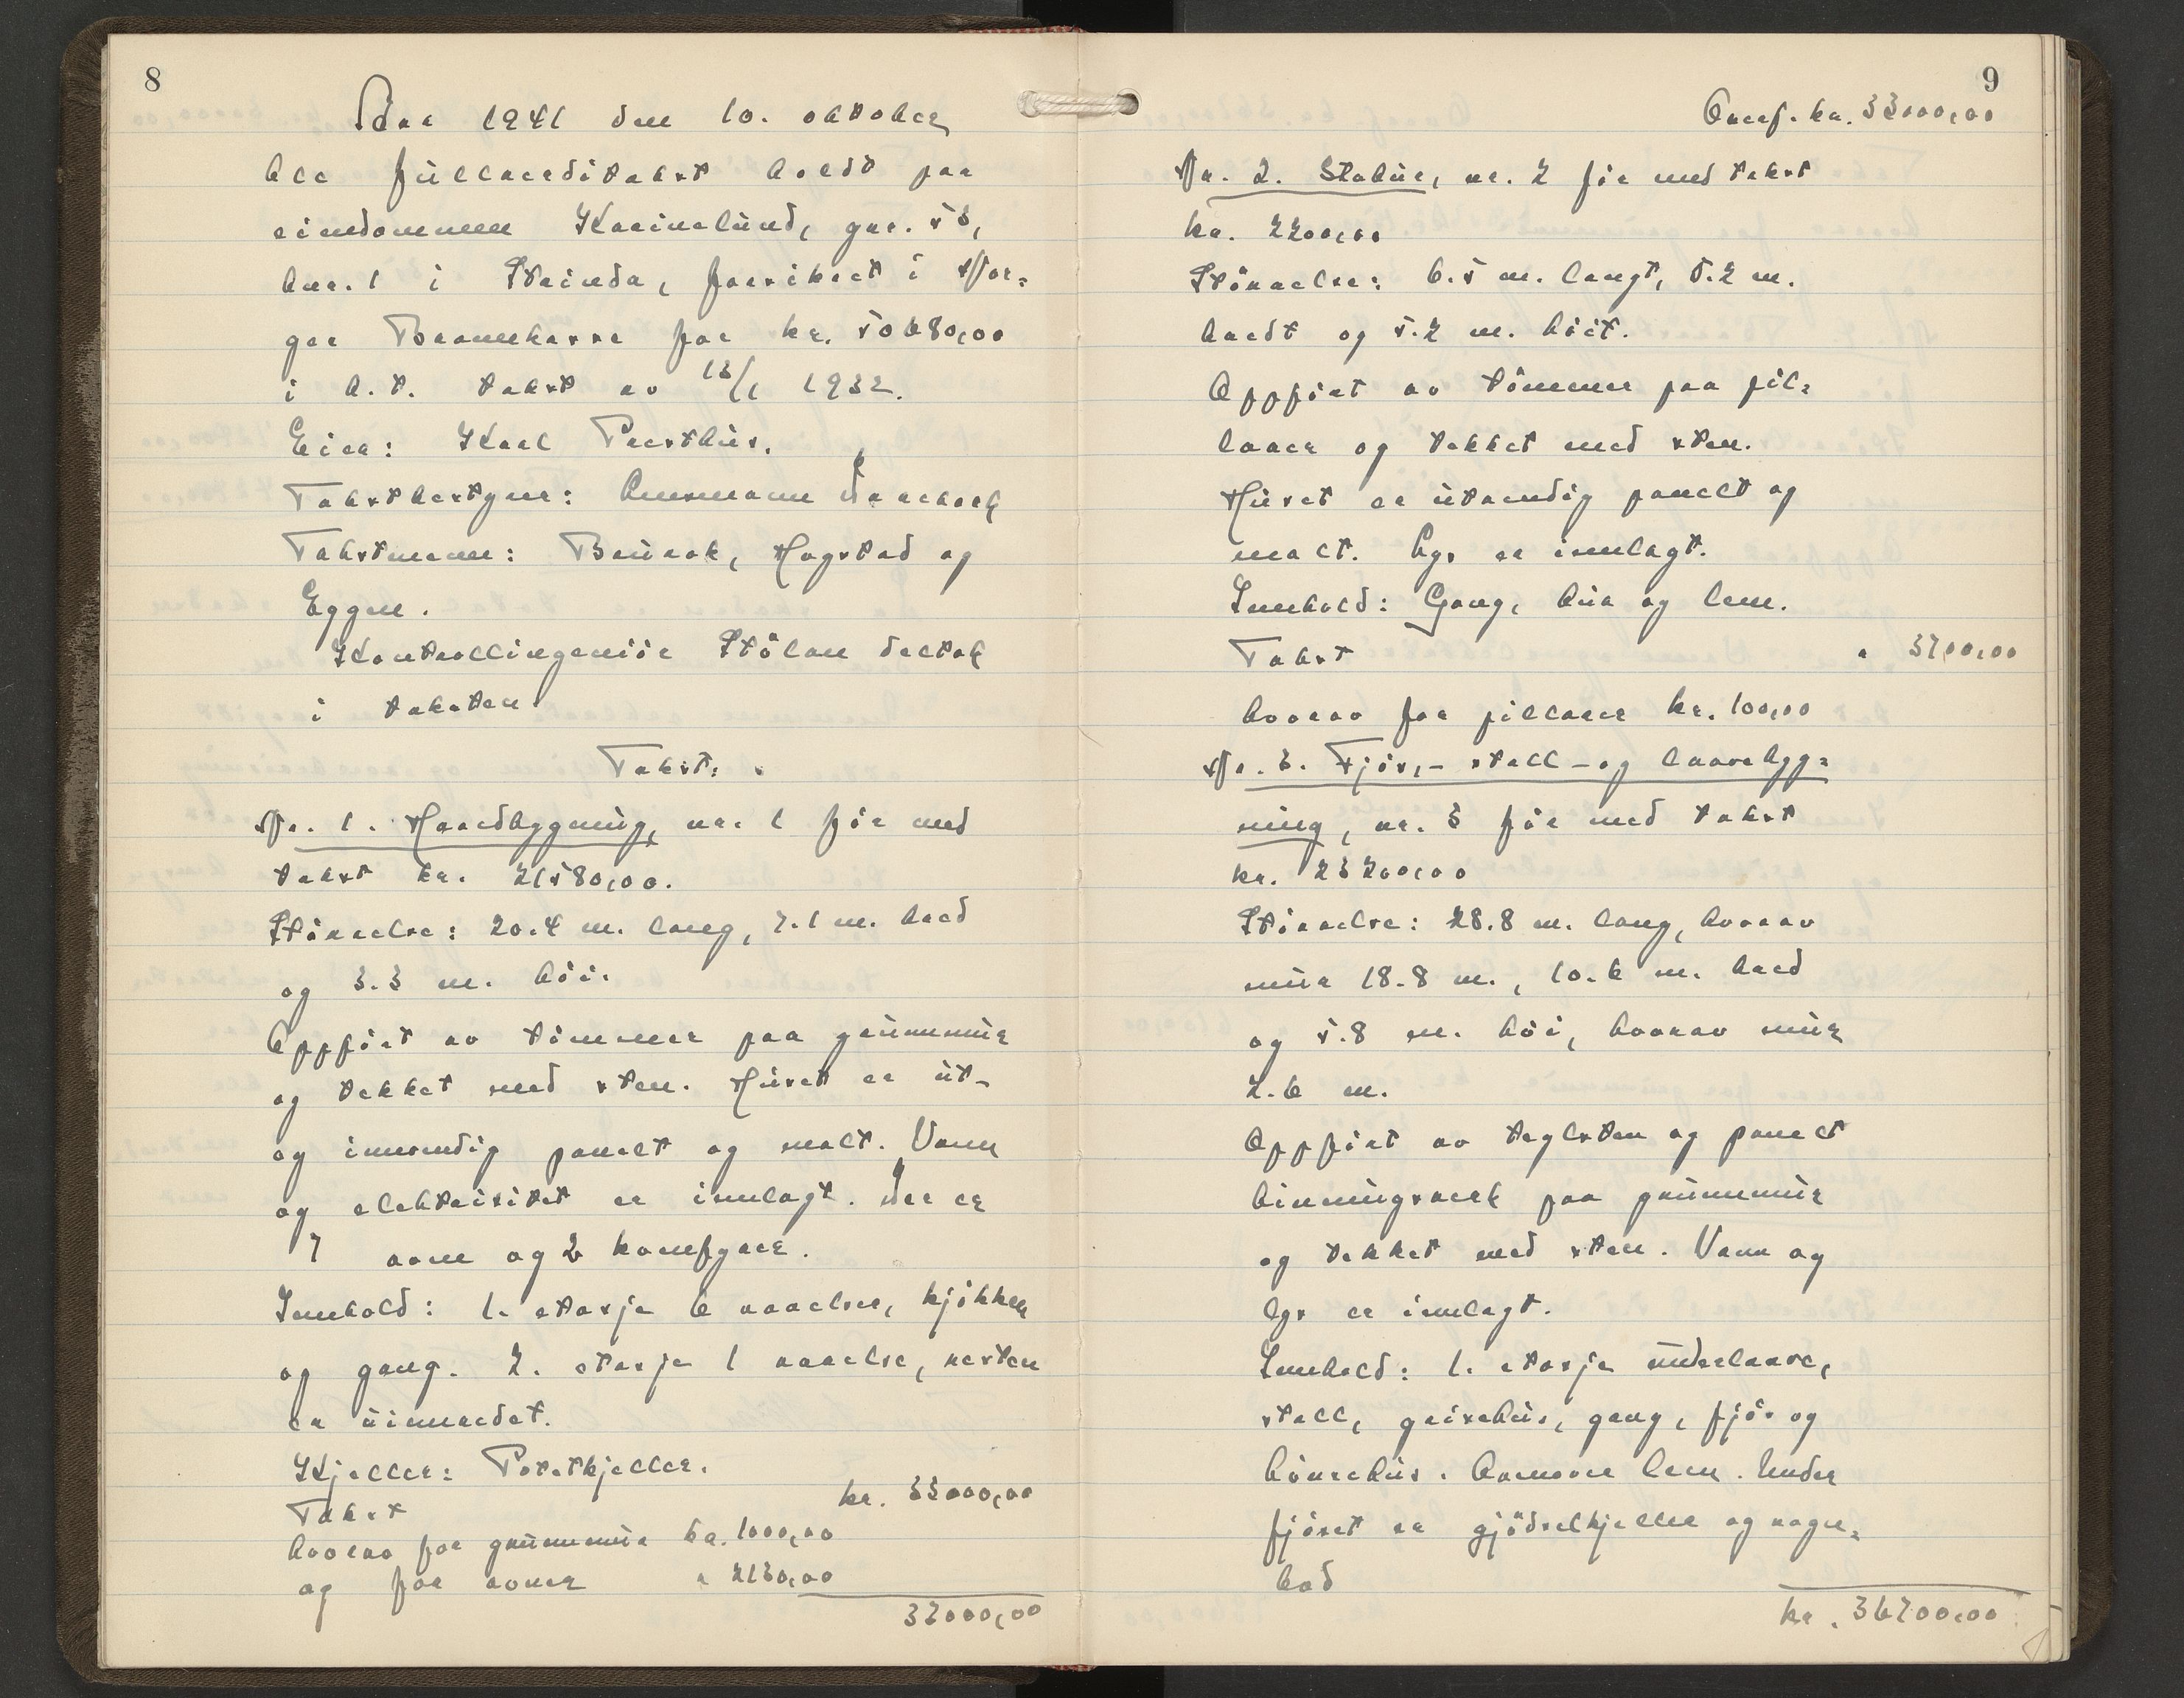 8
Aar 1941 den 10. oktober
ble fullverditakst holdt paa
eiendommen Karinelund, gnr. 53,
bnr. 1 i Strinda, forsikret i Nor-
ges Brannkasse for kr. 50680,00
i b.t. takst av 13/1 1932.
Eier: Karl Presthus.
Takstbestyrer: Lensmann Daarvok
Takstmenn: Brurok, Hogstad og
Eggen.
Kontrollingeniør Stølan deltok
i taksten
Takst:
Nr. 1. Hovedbygning, nr. 1 før med
takst kr. 21580,00.
Størrelse: 20.4 m. lang, 7.1 m. bred
og 3.3 m. høi.
Oppført av tømmer paa grunnmur
og tekket med sten. Huset er ut-
og innvendig panelt og malt. Vann
og elektrisitet er innlagt. Der er
7 ovne og 2 komfyrer.
Innhold: 1. etasje 6 værelser, kjøkken
og gang. 2. etasje 1 værelse, resten
er uinnredet.
Kjeller: Potetkjeller.
Takst kr. 33000,00
hvorav for grunnmur kr. 1000,00
og for ovner " 2130,00
33000,00
9
Overf. kr. 33000,00
Nr. 2. Stabur, nr. 2 før med takst
kr. 2200,00
Størrelse: 6.5 m. langt, 5.2 m.
bredt og 5.2 m. høit.
Oppført av tømmer paa pil-
larer og tekket med sten.
Huset er utvendig panelt og
malt. Lys er innlagt.
Innhold: Gang, bur og lem.
Takst " 3700,00
hvorav for pillarer kr. 100,00
Nr. 3. Fjøs,- stall - og laavebygg-
ning, nr. 3 før med takst
kr. 23200,00
Størrelse: 28.8 m. lang, hvorav
mur 18.8 m., 10.6 m. bred
og 5.8 m. høi, hvorav mur
2.6 m.
Oppført av teglsten og panelt
binningsverk paa grunnmur
og tekket med sten. Vann og
lys er innlagt.
Innhold: 1. etasje underlaave,
stall, grisehus, gang, fjøs og
hønsehus. Ovenover lem. Under
fjøset er gjødselkjeller og vogn-
bod
kr. 36700,00